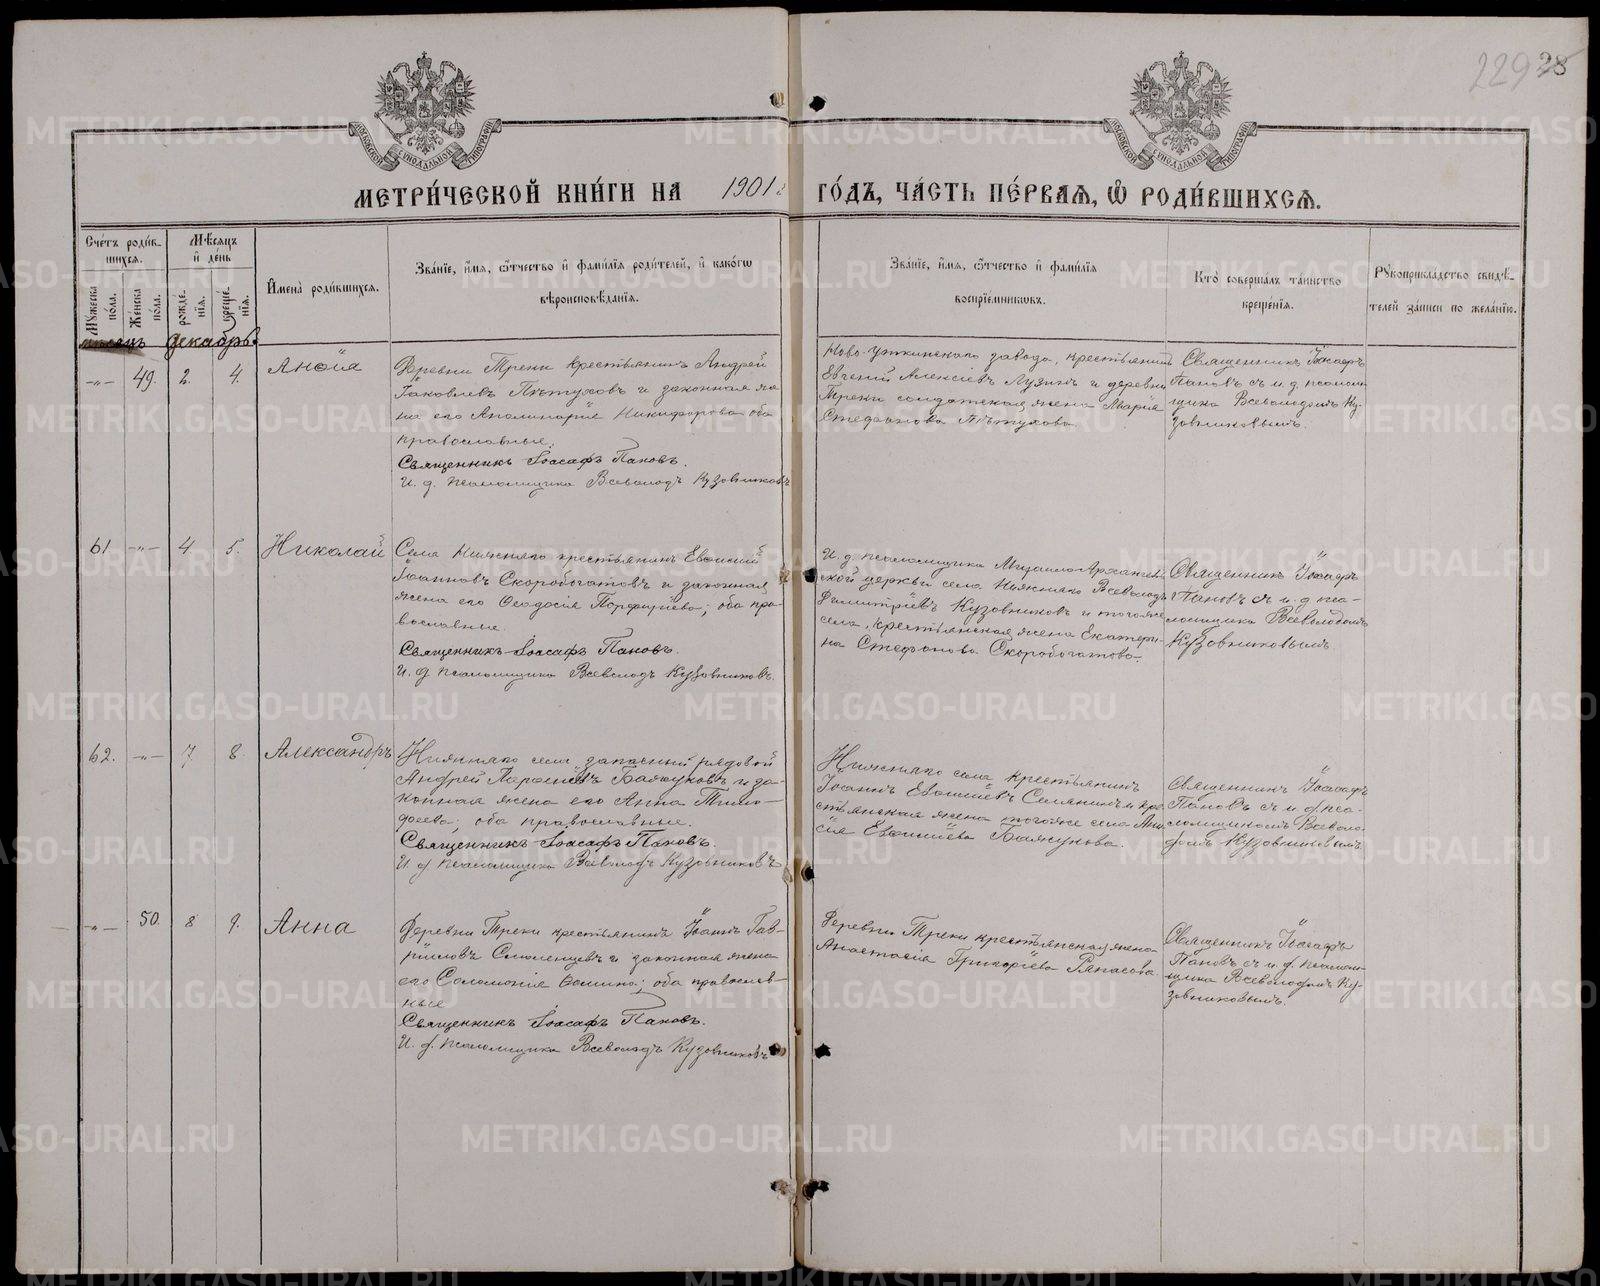 229 28
МОСКОВСКОЙ СѴНОДАЛЬНОЙ ТИПОГРАФІИ
МОСКОВСКОЙ СѴНОДАЛЬНОЙ ТИПОГРАФІИ
МЕТРИ́ЧЕСКОЙ КНИ́ГИ НА 1901 г ГО́ДЪ, ЧА́СТЬ ПЕ́РВАЯ, Ѽ РОДИ́ВШИХСѦ.
Сче́тъ роди́в-
шихсѧ.
Мꙋ́жеска по́ла.
Же́нска по́ла.
Мѣ́сѧцъ
и҆ де́нь
рожде́-
нїѧ.
креще́-
нїѧ.
И҆мена̀ роди́вшихсѧ.
Зва́нїе, и҆́мѧ, ѻ҆́тчество и҆ фами́лїѧ роди́телей, и҆ како́гѡ
вѣроисповѣ́данїѧ.
Зва́нїе, и҆́мѧ, ѻ҆́тчество и҆ фами́лїѧ
воспрїе́мниковъ.
Кто̀ соверша́лъ та́инство
креще́нїѧ.
Рꙋкоприкла́дство свидѣ́-
телей за́писи по жела́нїю.
мѣсяцъ декабрь.
-„- 49. 2. 4.
Анѳія
Деревни Треки крестьянинъ Андрей
Іаковлевъ Пѣтуховъ и законная же-
на его Аполинарія Никифорова оба
православные.
Священникъ Іоасафъ Пановъ.
И. д. псаломщика Всеволодъ Кузовниковъ
Ново-Уткинскаго завода, крестьянинъ
Евгеній Алексіевъ Лузинъ и деревни
Треки солдатская жена Марія
Стефанова Пѣтухова.
Священникъ Іоасафъ
Пановъ съ и. д. псалом-
щика Всеволодомъ Ку-
зовниковымъ.
61 -„- 4. 5.
Николай
Села Нижняго крестьянинъ Евѳимій
Іоанновъ Скоробогатовъ и законная
жена его Ѳеодосія Порфиріева; оба пра-
вославные.
Священникъ Іоасафъ Пановъ.
И. д. псаломщика Всеволодъ Кузовниковъ.
И. д. псаломщика Михаило-Архангель-
ской церкви села Нижняго Всеволодъ
Димитріевъ Кузовниковъ и тогоже
села, крестьянская жена Екатери-
на Стефанова Скоробогатова.
Священникъ Іоасафъ
Пановъ съ и. д. пса-
ломщика Всеволодомъ
Кузовниковымъ.
62. -„- 7. 8.
Александръ
Нижняго села, запасный рядовой
Андрей Парѳеніевъ Бажуковъ и за-
конная жена его Анна Тимо-
феева; оба православные.
Священникъ Іоасафъ Пановъ.
И. д. псаломщика Всеволодъ Кузовниковъ
Нижняго села крестьянинъ
Іоаннъ Евѳиміевъ Селянинъ и кре-
стьянская жена тогоже села Ана-
сія Евѳиміева Бажукова.
Священникъ Іоасафъ
Пановъ съ и. д. пса-
ломщикомъ Всеволо-
домъ Кузовниковымъ.
-„- 50. 8 9.
Анна
Деревни Треки крестьянинъ Іоаннъ Гав-
рииловъ Смоленцевъ и законная жена
его Соломонія Ѳомина; оба православ-
ные
Священникъ Іоасафъ Пановъ.
И. д. псаломщика Всеволодъ Кузовниковъ
Деревни Треки крестьянская жена
Анастасія Григоріева Рапасова.
Священникъ Іоасафъ
Пановъ съ и. д. псалом-
щика Всеволодомъ Ку-
зовниковымъ.
METRIKI.GASO-URAL.RU